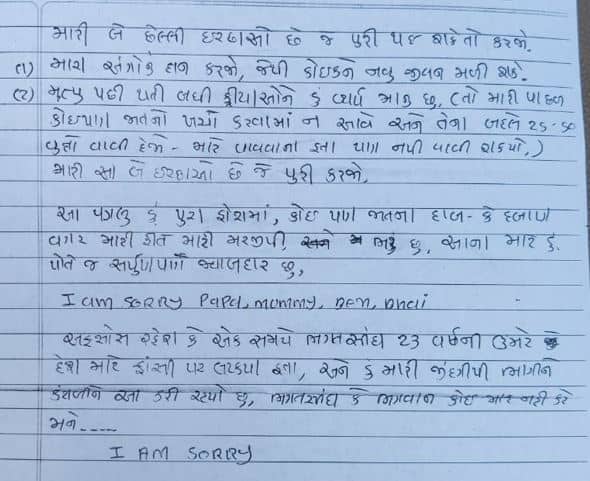 મારી બે છેલ્લી ઇચ્છાઓ છે જ પુરી થઇ શકે તો કરજો.
(૧) મારા અંગોનું દાન કરજો, જેથી કોઇકને નવુ જીવન મળી શકે.
(૨) મૃત્યુ પછી થતી બધી ક્રીયાઓને હું વ્યર્થ માનુ છુ, (તો મારી પાછળ
કોઇપણ જાતનો ખર્ચો કરવામાં ન આવે અને તેના બદલે 25-50
વૃક્ષો વાવી દેજો - મારે વાવવાના હતા પણ નથી વાવી શક્યો.)
મારી આ બે ઇચ્છાઓ છે જે પુરી કરજો.
આ પગલુ હું પુરા હોશમાં, કોઇ પણ જાતના દાબ- કે દબાણ
વગર મારી રીતે મારી મરજીથી ભરૂ છુ, આના માટે હું
પોતે જ સંપુર્ણપણે જવાબદાર છુ,
I am SORRY PaPa, mummy, Ben, Bhai
અફસોસ રહેશે કે એક સમયે ભગતસીંઘ 23 વર્ષની ઉંમરે
દેશ માટે ફાંસી પર લટક્યા હતા, અને હું મારી જીંદગીથી ભાગીને
કંટાળીને આ કરી રહ્યો છુ, ભગતસીંઘ કે ભગવાન કોઇ માફ નહી કરે
મને....
I AM SORRY